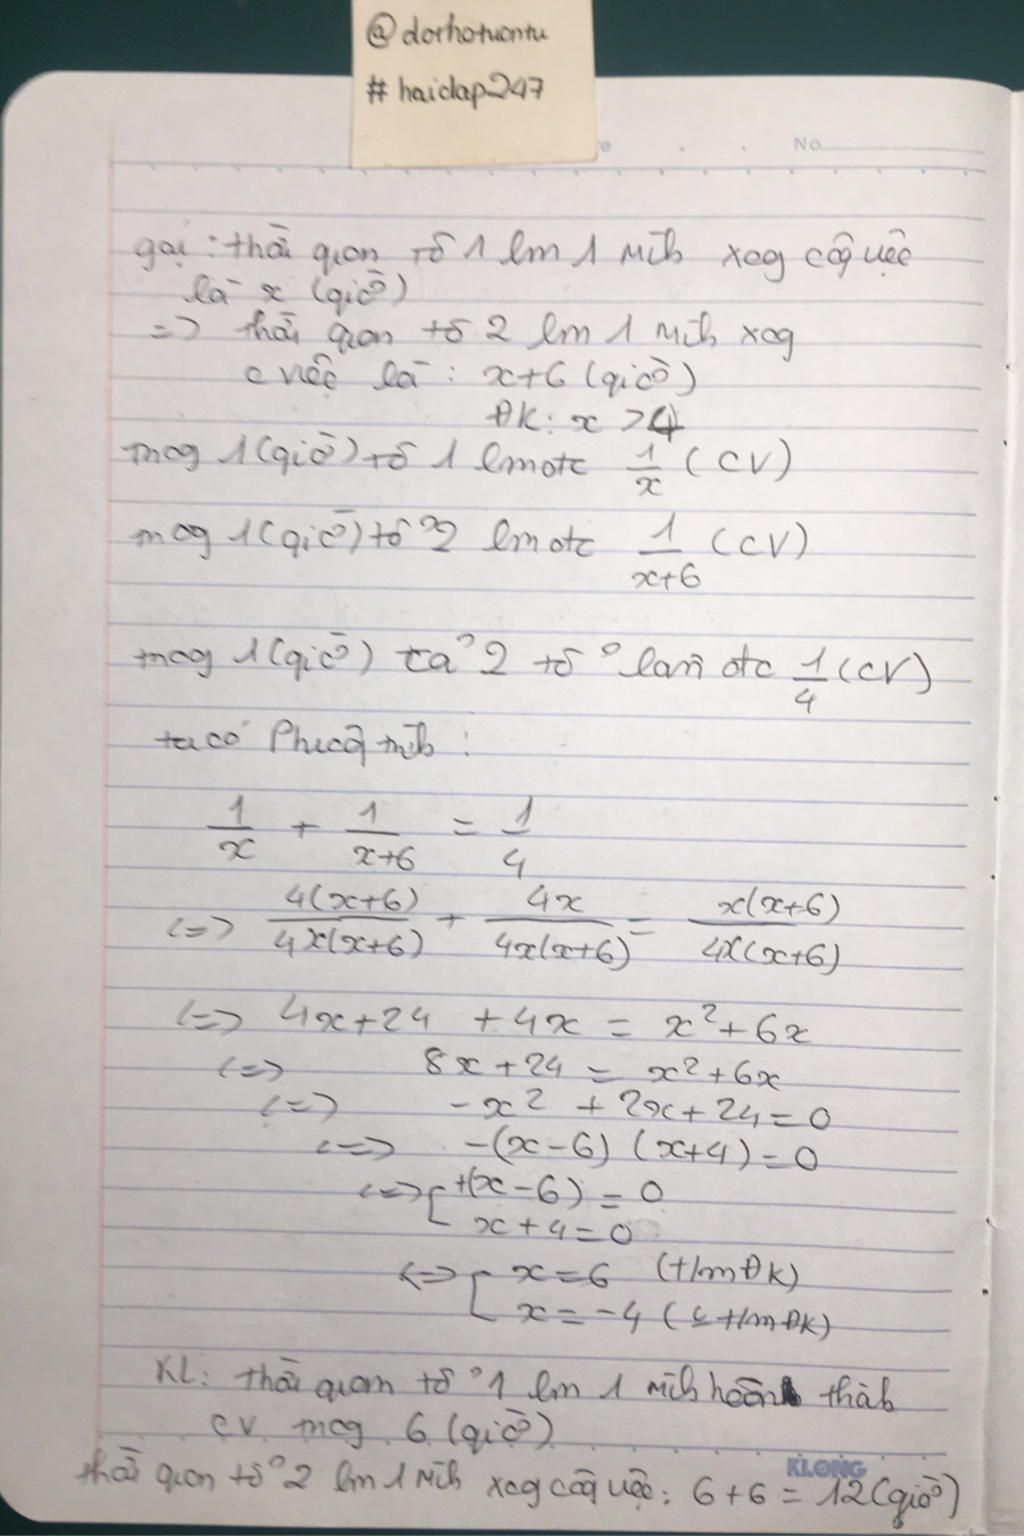 @dorhotuontu
# haidap247
No
gọi : thời gian tổ 1 lm 1 mìh xog côg việc
là x (giờ)
=> thời gian tổ 2 lm 1 mìh xog
c việc là : x+6 (giờ)
ĐK: x >4
mog 1(giờ) tổ 1 lm đtc 1/x (CV)
mog 1(giờ) tổ 2 lm đtc 1/(x+6) (CV)
mog 1(giờ) cả 2 tổ làm đtc 1/4 (CV)
ta có Phươg trìh :
1/x + 1/(x+6) = 1/4
<=> 4(x+6)/4x(x+6) + 4x/4x(x+6) = x(x+6)/4x(x+6)
<=> 4x+24 +4x = x²+6x
<=> 8x+24 = x²+6x
<=> -x² + 2x+24=0
<=> -(x-6) (x+4)=0
<=> [ +(x-6)=0
x+4=0
<=> [ x=6 (t/m ĐK)
x=-4 ( t/m ĐK)
KL: thời gian tổ 1 lm 1 mìh hoàn thàh
cv mog 6 (giờ)
KLONG
thời gian tổ 2 lm 1 mìh xog côg việc: 6+6=12(giờ)